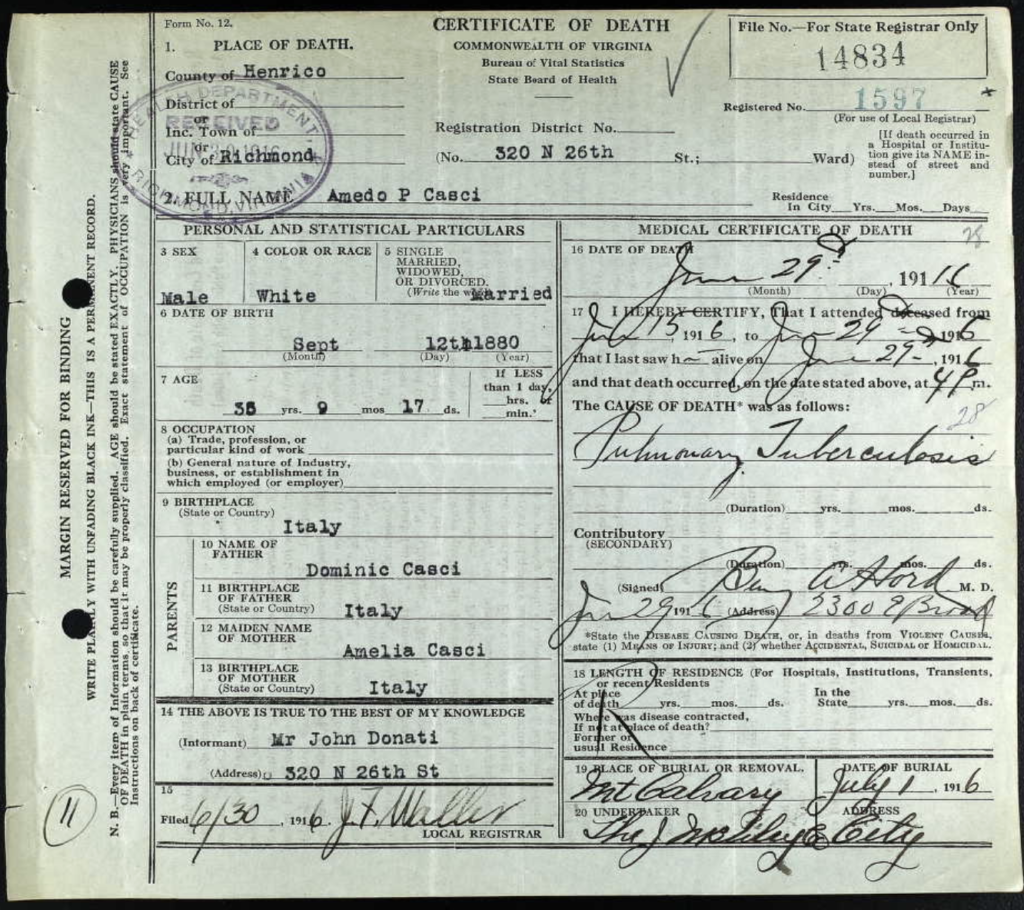 Form No. 12.
CERTIFICATE OF DEATH
COMMONWEALTH OF VIRGINIA
Bureau of Vital Statistics
State Board of Health
File No.—For State Registrar Only
14834
Registered No. 1597
(For use of Local Registrar)
[If death occurred in
a Hospital or Institu-
tion give its NAME in-
stead of street and
number.]
1. PLACE OF DEATH.
County of Henrico
District of
or
Inc. Town of
or
City of Richmond
HEALTH DEPARTMENT,
RECEIVED
JUN 30 1916
RICHMOND, VIRGINIA
Registration District No.
(No. 320 N 26th St.; Ward)
2. FULL NAME Amedo P Casci
Residence
In City Yrs. Mos. Days
PERSONAL AND STATISTICAL PARTICULARS
3 SEX
Male
4 COLOR OR RACE
White
5 SINGLE
MARRIED,
WIDOWED,
OR DIVORCED.
(Write the word)
Married
6 DATE OF BIRTH
Sept 12th 1880
(Month) (Day) (Year)
7 AGE
35 yrs. 9 mos 17 ds.
If LESS
than 1 day,
hrs. or
min.*
8 OCCUPATION
(a) Trade, profession, or
particular kind of work
(b) General nature of Industry,
business, or establishment in
which employed (or employer)
9 BIRTHPLACE
(State or Country)
Italy
PARENTS
10 NAME OF
FATHER
Dominic Casci
11 BIRTHPLACE
OF FATHER
(State or Country)
Italy
12 MAIDEN NAME
OF MOTHER
Amelia Casci
13 BIRTHPLACE
OF MOTHER
(State or Country)
Italy
14 THE ABOVE IS TRUE TO THE BEST OF MY KNOWLEDGE
(Informant) Mr John Donati
(Address) 320 N 26th St
15
Filed 6/30, 1916 J. F. Waller
LOCAL REGISTRAR
MEDICAL CERTIFICATE OF DEATH
28
16 DATE OF DEATH
June 29th, 19116
(Month) (Day) (Year)
17 I HEREBY CERTIFY, That I attended deceased from
15 1916, to June 29 1916
that I last saw h alive on June 29, 1916
and that death occurred, on the date stated above, at 4 P m.
The CAUSE OF DEATH* was as follows:
28
Pulmonary Tuberculosis
(Duration) yrs. mos. ds.
Contributory
(SECONDARY)
(Duration) yrs. mos. ds.
(Signed) Benj A Hord M. D.
June 29 1916 (Address) 2300 E Broad
*State the DISEASE CAUSING DEATH, or, in deaths from VIOLENT CAUSES,
state (1) MEANS OF INJURY; and (2) whether ACCIDENTAL, SUICIDAL OR HOMICIDAL.
18 LENGTH OF RESIDENCE (For Hospitals, Institutions, Transients,
or recent Residents
At place
of death yrs. mos. ds.
In the
State yrs. mos. ds.
Where was disease contracted,
If not at place of death?
Former or
usual Residence
19 PLACE OF BURIAL OR REMOVAL.
Mt Calvary
DATE OF BURIAL
July 1, 1916
20 UNDERTAKER
The J
ADDRESS
City
MARGIN RESERVED FOR BINDING
WRITE PLAINLY WITH UNFADING BLACK INK—THIS IS A PERMANENT RECORD.
N. B.—Every item of Information should be carefully supplied. AGE should be stated EXACTLY. PHYSICIANS should state CAUSE
OF DEATH in plain terms, so that it may be properly classified. Exact statement of OCCUPATION is very important. See
Instructions on back of certificate.
11